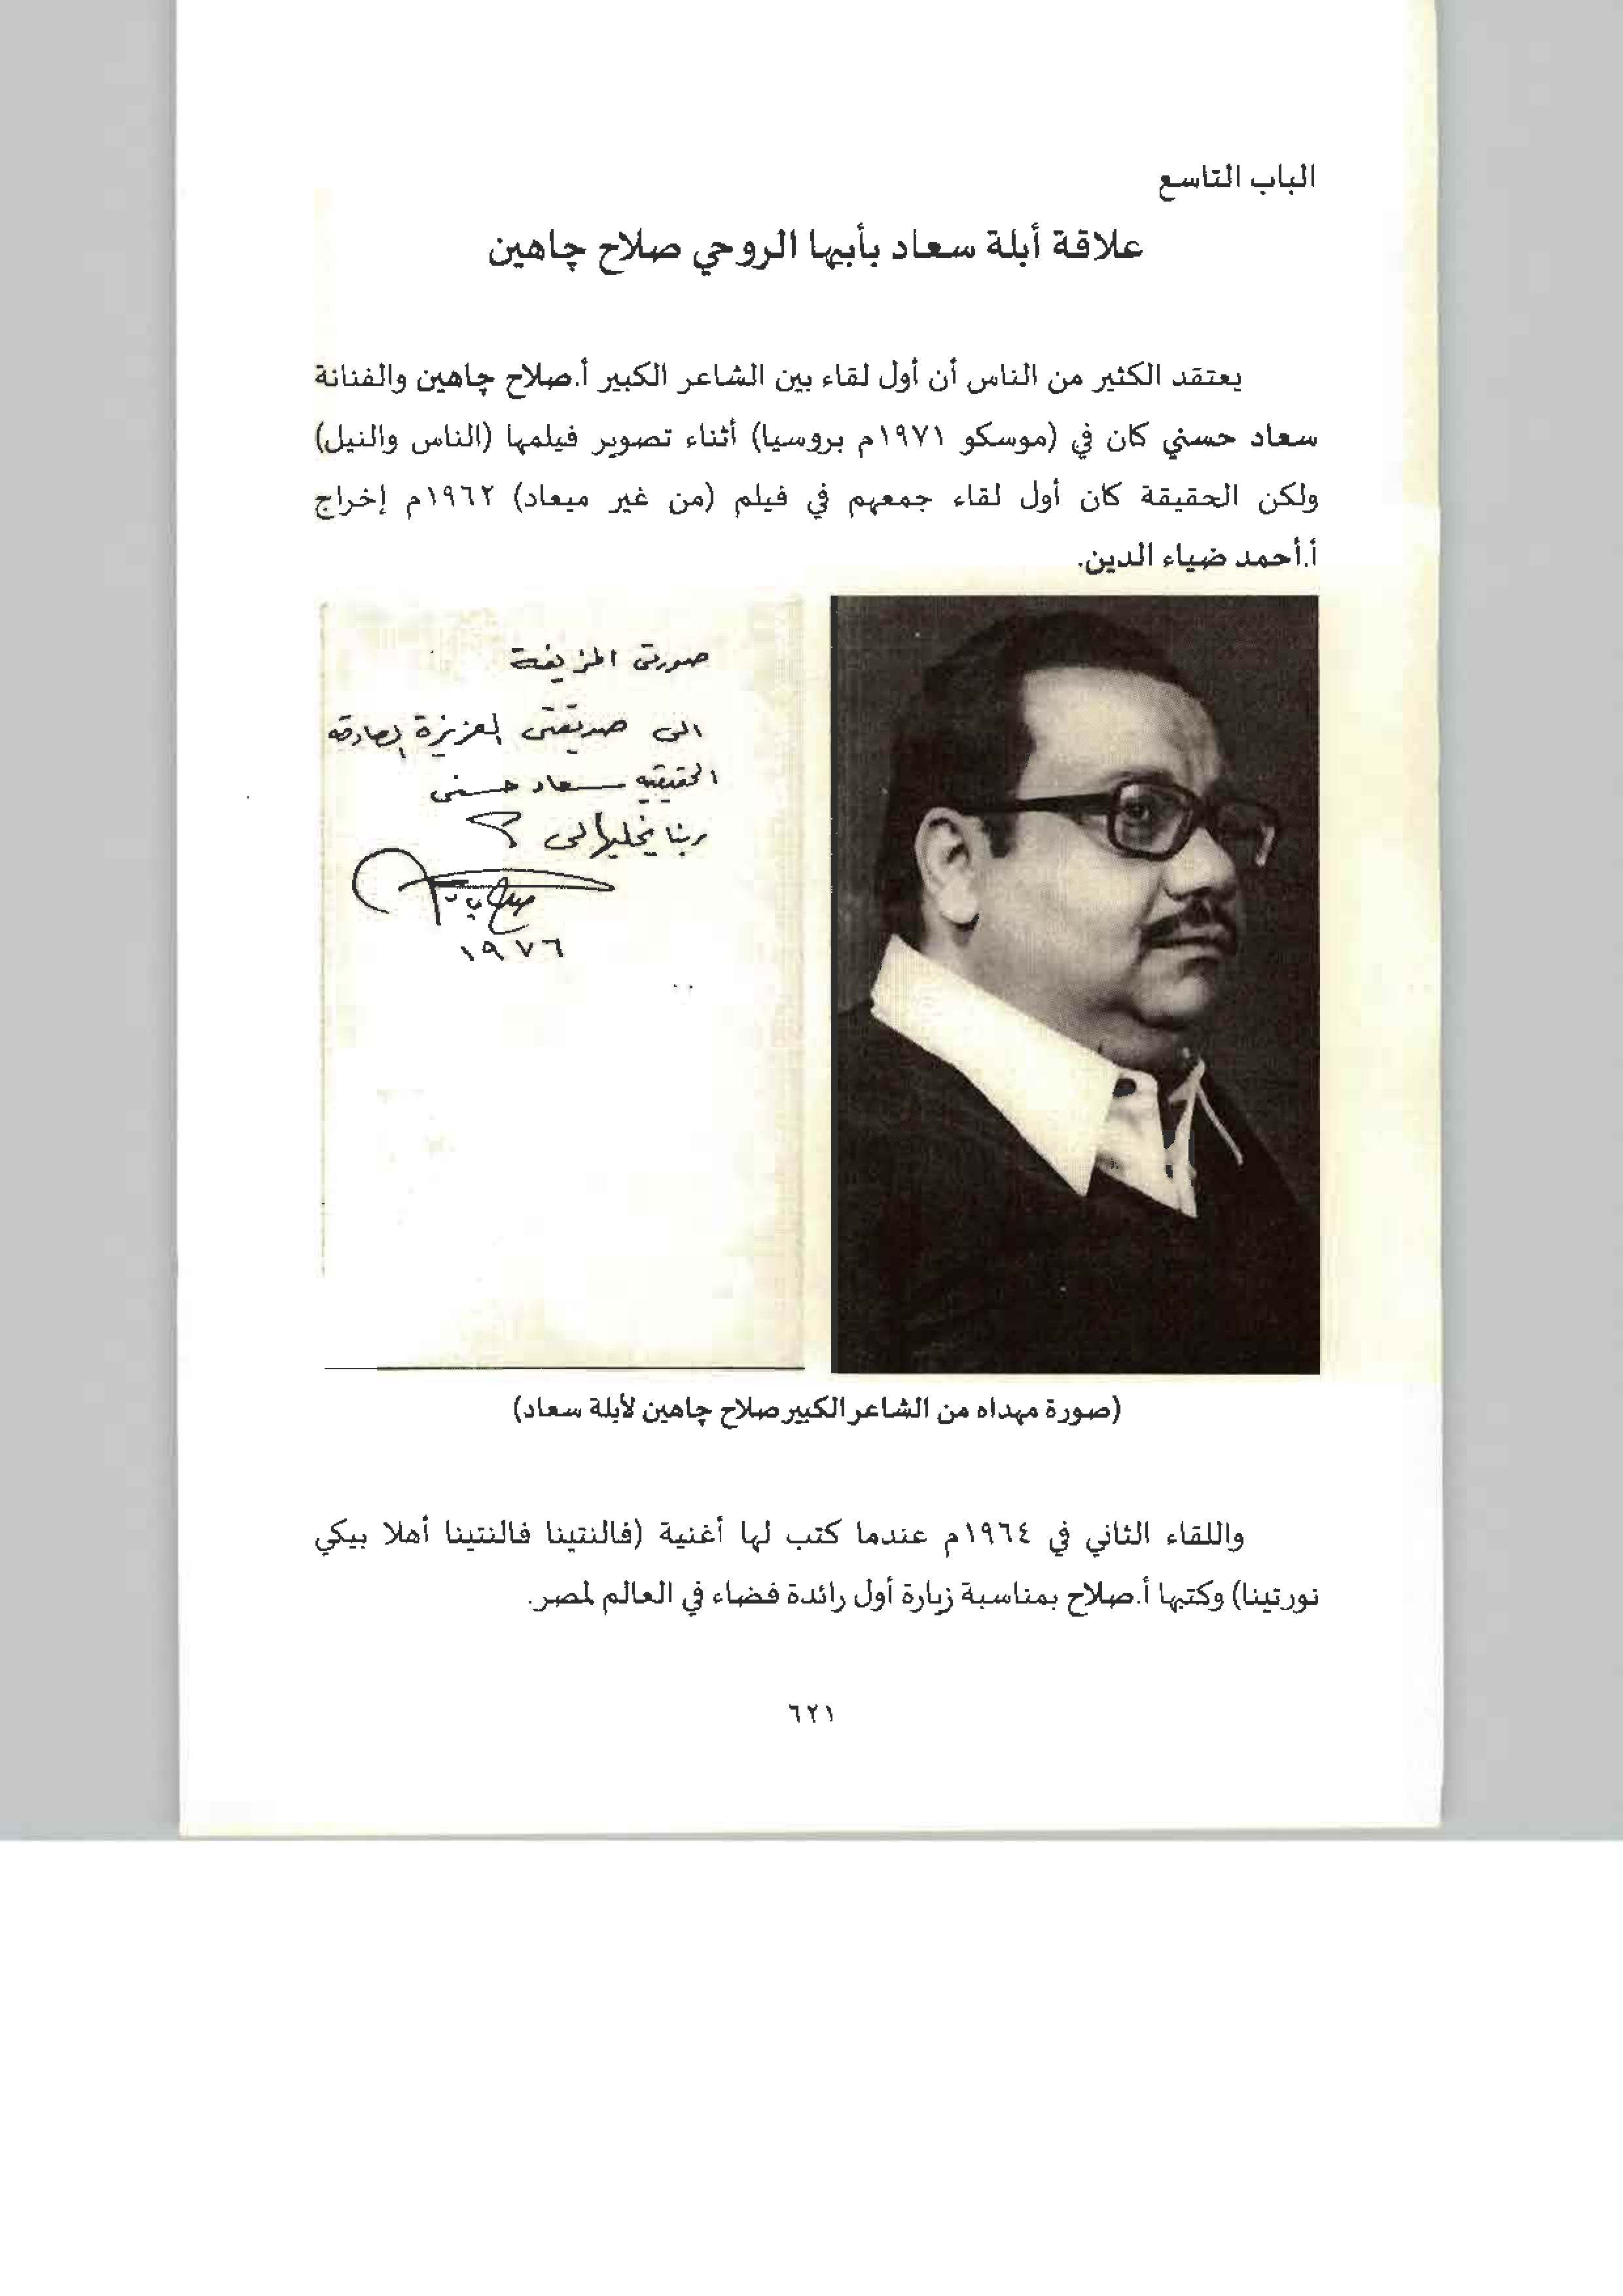 الباب التاسع
علاقة أبلة سعاد بأبيها الروحي صلاح چاهين
يعتقد الكثير من الناس أن أول لقاء بين الشاعر الكبير أ.صلاح چاهين والفنانة
سعاد حسني كان في (موسكو ١٩٧١م بروسيا) أثناء تصوير فيلمها (الناس والنيل)
ولكن الحقيقة كان أول لقاء جمعهم في فيلم (من غير ميعاد) ١٩٦٢م إخراج
أ.أحمد ضياء الدين.
صورتى المزيفة
الى صديقتى العزيزة الصادقه
الحقيقيه سعاد حسنى
ربنا يخليها لى
صلاح چاهين
١٩٧٦
(صورة مهداه من الشاعر الكبير صلاح چاهين لأبلة سعاد)
واللقاء الثاني في ١٩٦٤م عندما كتب لها أغنية (فالنتينا فالنتينا أهلا بيكي
نورتينا) وكتبها أ.صلاح بمناسبة زيارة أول رائدة فضاء في العالم لمصر.
٦٢١